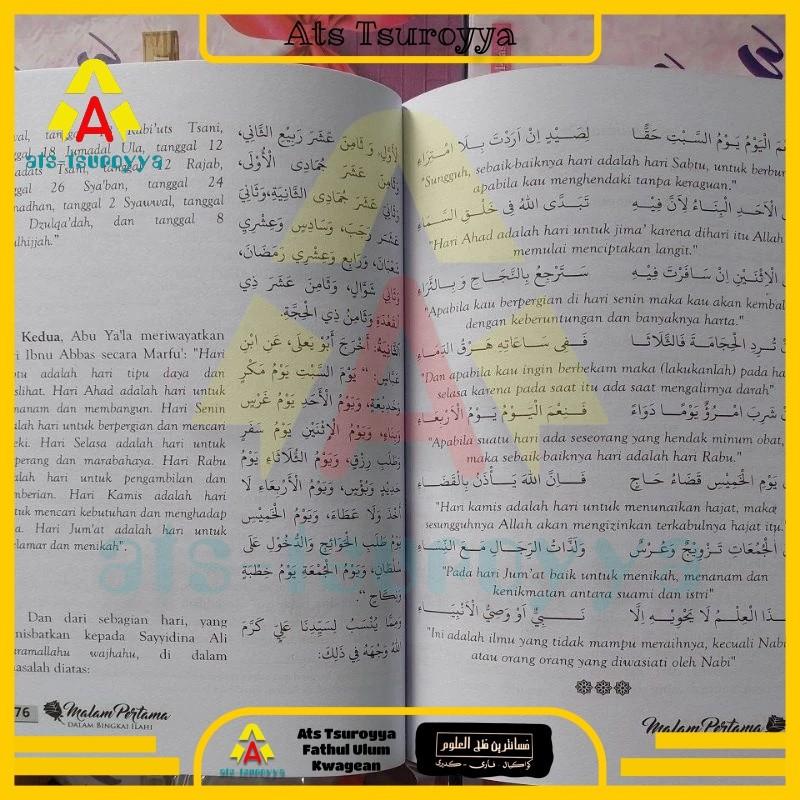 Ats Tsuroyya
ats-Tsuroyya
Rabi'uts Tsani,
18 Jumadal Ula, tanggal 12
Tsani, 12 Rajab,
26 Sya'ban, tanggal 24
tanggal 2 Syawwal, tanggal
Dzulqa'dah, dan tanggal 8
Kedua, Abu Ya'la meriwayatkan
Ibnu Abbas secara Marfu': "Hari
adalah hari tipu daya dan
Hari Ahad adalah hari untuk
dan membangun. Hari Senin
hari untuk berpergian dan mencari
Hari Selasa adalah hari untuk
dan marabahaya. Hari Rabu
hari untuk pengambilan dan
Hari Kamis adalah hari
mencari kebutuhan dan menghadap
Hari Jum'at adalah hari untuk
dan menikah".
Dan dari sebagian hari, yang
kepada Sayyidina Ali
wajhahu, di dalam
diatas:
الْأَوَّلِ، وَثَامِنَ عَشَرَ رَبِيْعِ الثَّانِي،
وَثَامِنَ عَشَرَ جُمَادِى الْأُوْلَى،
وَثَانِيَ عَشَرَ جُمَادِى الثَّانِيَةِ، وَثَانِيَ
عَشَرَ رَجَبَ، وَسَادِسَ وَعِشْرِي
شَعْبَانَ، وَرَابِعَ وَعِشْرِي رَمَضَانَ،
وَثَانِيَ شَوَّالٍ، وَثَامِنَ عَشَرَ ذِي
الْقَعْدَةِ وَثَامِنَ ذِي الْحِجَّةِ.
الثَّانِيَةُ: أَخْرَجَ أَبُوْ يَعْلَى، عَنِ ابْنِ
عَبَّاسٍ " يَوْمُ السَّبْتِ يَوْمُ مَكْرٍ
وَخَدِيْعَةٍ، وَيَوْمُ الْأَحَدِ يَوْمُ غَرْسٍ
وَبِنَاءٍ، وَيَوْمُ الْإِثْنَيْنِ يَوْمُ سَفَرٍ
وَطَلَبِ رِزْقٍ، وَيَوْمُ الثُّلَاثَاءِ يَوْمُ
حَدِيْدٍ وَبُؤْسٍ، وَيَوْمُ الْأَرْبِعَاءِ لَا
أَخْذَ وَلَا عَطَاءَ، وَيَوْمُ الْخَمِيْسِ
يَوْمُ طَلَبِ الْحَوَائِجِ وَالدُّخُوْلِ عَلَى
سُلْطَانٍ، وَيَوْمُ الْجُمْعَةِ يَوْمُ خِطْبَةٍ
وَنِكَاحٍ ".
وَمِمَّا يُنْسَبُ لِسَيِّدِنَا عَلِيٍّ كَرَّمَ
اللهُ وَجْهَهُ فِي ذَلِكَ:
76 Malam Pertama
DALAM BINGKAI ILAHI
الْيَوْمُ يَوْمُ السَّبْتِ حَقًّا لِصَيْدٍ اِنْ اَرَدْتَ بِلَا امْتِرَاءِ
"Sungguh, sebaik-baiknya hari adalah hari Sabtu, untuk
apabila kau menghendaki tanpa keraguan."
الْاَحَدِ الْبِنَاءُ لِاَنَّ فِيْهِ تَبَدَّى اللهُ فِى خَلْقِ السَّمَاءِ
"Hari Ahad adalah hari untuk jima' karena dihari itu Allah
memulai menciptakan langit."
الْاِثْنَيْنِ اِنْ سَافَرْتَ فِيْهِ سَتَرْجِعُ بِالنَّجَاحِ وَبِالثَّرَاءِ
"Apabila kau berpergian di hari senin maka kau akan
dengan keberuntungan dan banyaknya harta."
تُرِدِ الْحِجَامَةَ فَالثَّلَاثَا فَفِى سَاعَاتِهِ هَرْقُ الدِّمَاءِ
"Dan apabila kau ingin berbekam maka (lakukanlah) pada
selasa karena pada saat itu ada saat mengalirnya darah"
شَرِبَ امْرُؤٌ يَوْمًا دَوَاءً فَنِعْمَ الْيَوْمُ يَوْمُ الْاَرْبِعَاءِ
"Apabila suatu hari ada seseorang yang hendak minum obat,
maka sebaik-baiknya hari adalah hari Rabu."
يَوْمِ الْخَمِيْسِ قَضَاءُ حَاجٍ فَاِنَّ اللهَ يَأْذَنُ بِالْقَضَاءِ
"Hari kamis adalah hari untuk menunaikan hajat, maka
sesungguhnya Allah akan mengizinkan terkabulnya hajat itu."
الْجُمُعَاتِ تَزْوِيْجٌ وَعُرْسٌ وَلَذَّاتُ الرِّجَالِ مَعَ النِّسَاءِ
"Pada hari Jum'at baik untuk menikah, menanam dan
kenikmatan antara suami dan istri"
الْعِلْمُ لَا يَحْوِيْهِ اِلَّا نَبِيٌّ اَوْ وَصِيُّ الْاَنْبِيَاءِ
"Ini adalah ilmu yang tidak mampu meraihnya, kecuali Nabi
atau orang orang yang diwasiati oleh Nabi"
Malam Pertama
ats-Tsuroyya
ats-Tsuroyya
Ats Tsuroyya
Fathul Ulum
Kwagean
فسانترين فتح العلوم